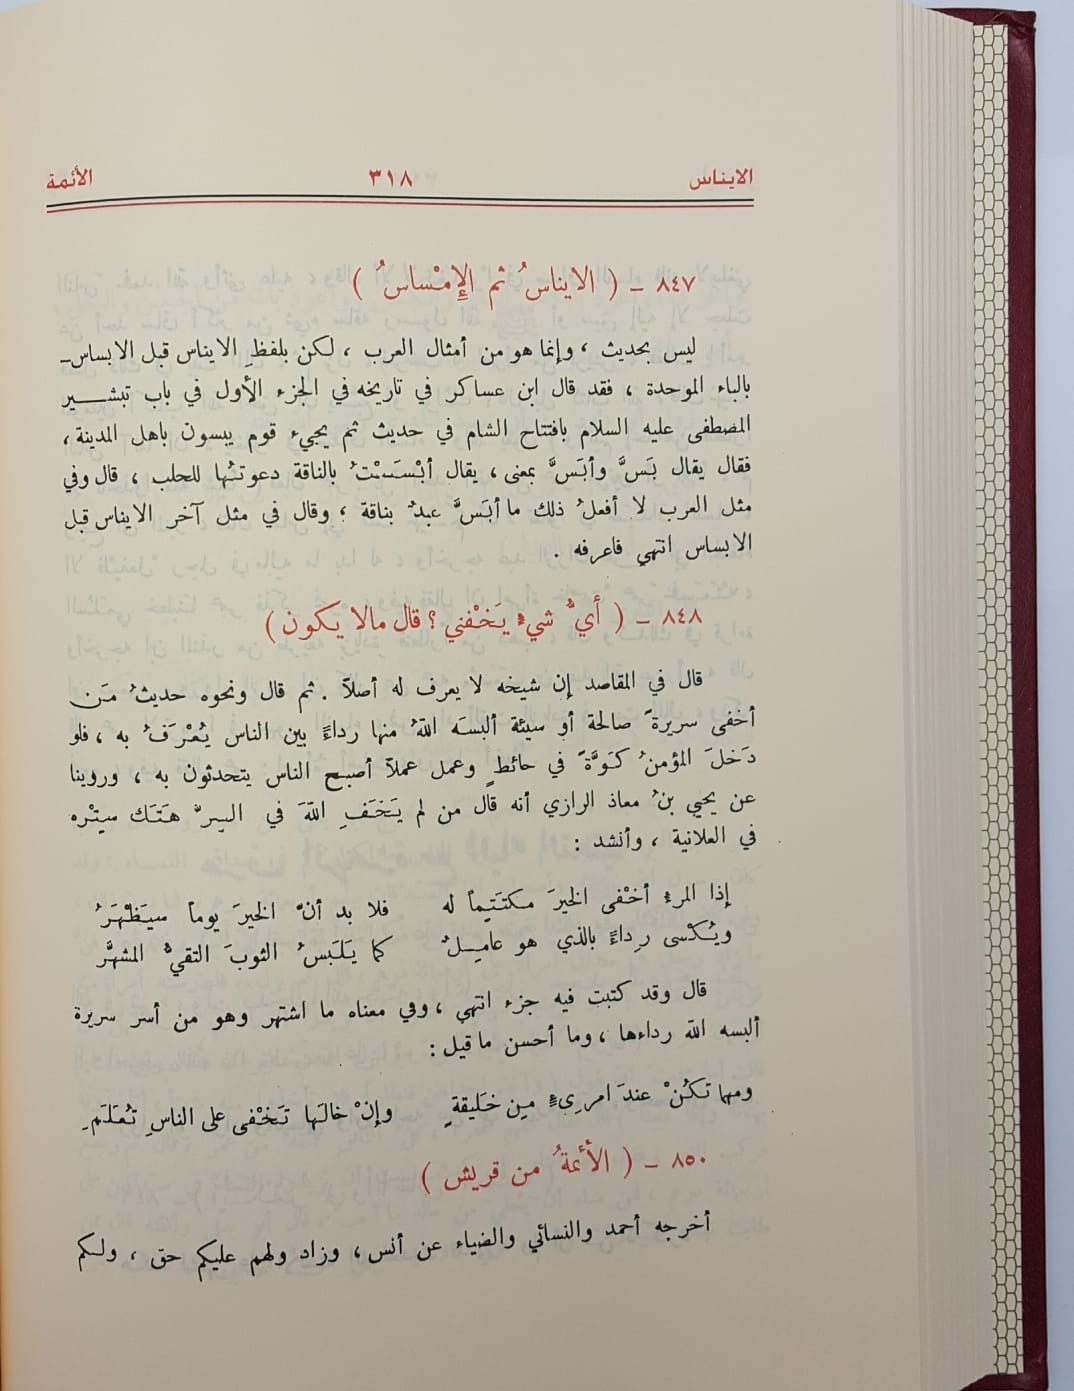 الايناس ٣١٨ الأئمة
٨٤٧ – ( الايناسُ ثم الإِمْساسُ )
ليس بحديث ، وإنما هو من أمثال العرب ، لكن بلفظِ الايناس قبل الابساس–
بالباء الموحدة ، فقد قال ابن عساكر في تاريخه في الجزء الأول في باب تبشير
المصطفى عليه السلام بافتتاح الشام في حديث ثم يجيء قوم يبسون باهل المدينة ،
فقال يقال بَسَّ وأبَسَّ بمعنى ، يقال أبْسَسْتُ بالناقة دعوتُها للحلب ، قال وفي
مثل العرب لا أفعلُ ذلك ما أبَسَّ عبدٌ بناقة ؛ وقال في مثل آخر الايناس قبل
الابساس انتهي فاعرفه .
٨٤٨ – ( أيُّ شيءٍ يَخْفي ؟ قال مالا يكون )
قال في المقاصد إن شيخه لا يعرف له أصلاً . ثم قال ونحوه حديثُ مَن
أخفى سريرةً صالحة أو سيئة ألبسَه اللهُ منها رداءً بين الناس يُعْرَفُ به ، فلو
دَخلَ المؤمنُ كَوَّةً في حائطٍ وعمل عملاً أصبح الناس يتحدثون به ، وروينا
عن يحيي بنُ معاذ الرازي أنه قال من لم يَخَفِ اللهَ في السِرَّ هَتَك سِتْره
في العلانية ، وأنشد :
إذا المرءُ أخْفى الخيرَ مكتَتِماً له فلا بد أنَّ الخيرَ يوماً سيَظْهَرُ
ويُكْسى رِداءً بالذي هو عامِلٌ كما يَلَبَسُ الثوبَ التقيُّ المشهَّر
قال وقد كتبت فيه جزء انتهي ، وفي معناه ما اشتهر وهو من أسر سريرة
ألبسه الله رداءها ، وما أحسن ما قيل :
ومهما تكُنْ عندَ امرِىءٍ مِن خَليقةٍ وإنْ خالَها تَخْفى على الناسِ تُعْلَمِ
٨٥٠ – ( الأئمةُ من قريش )
أخرجه أحمد والنسائي والضياء عن أنس ، وزاد ولهم عليكم حق ، ولكم